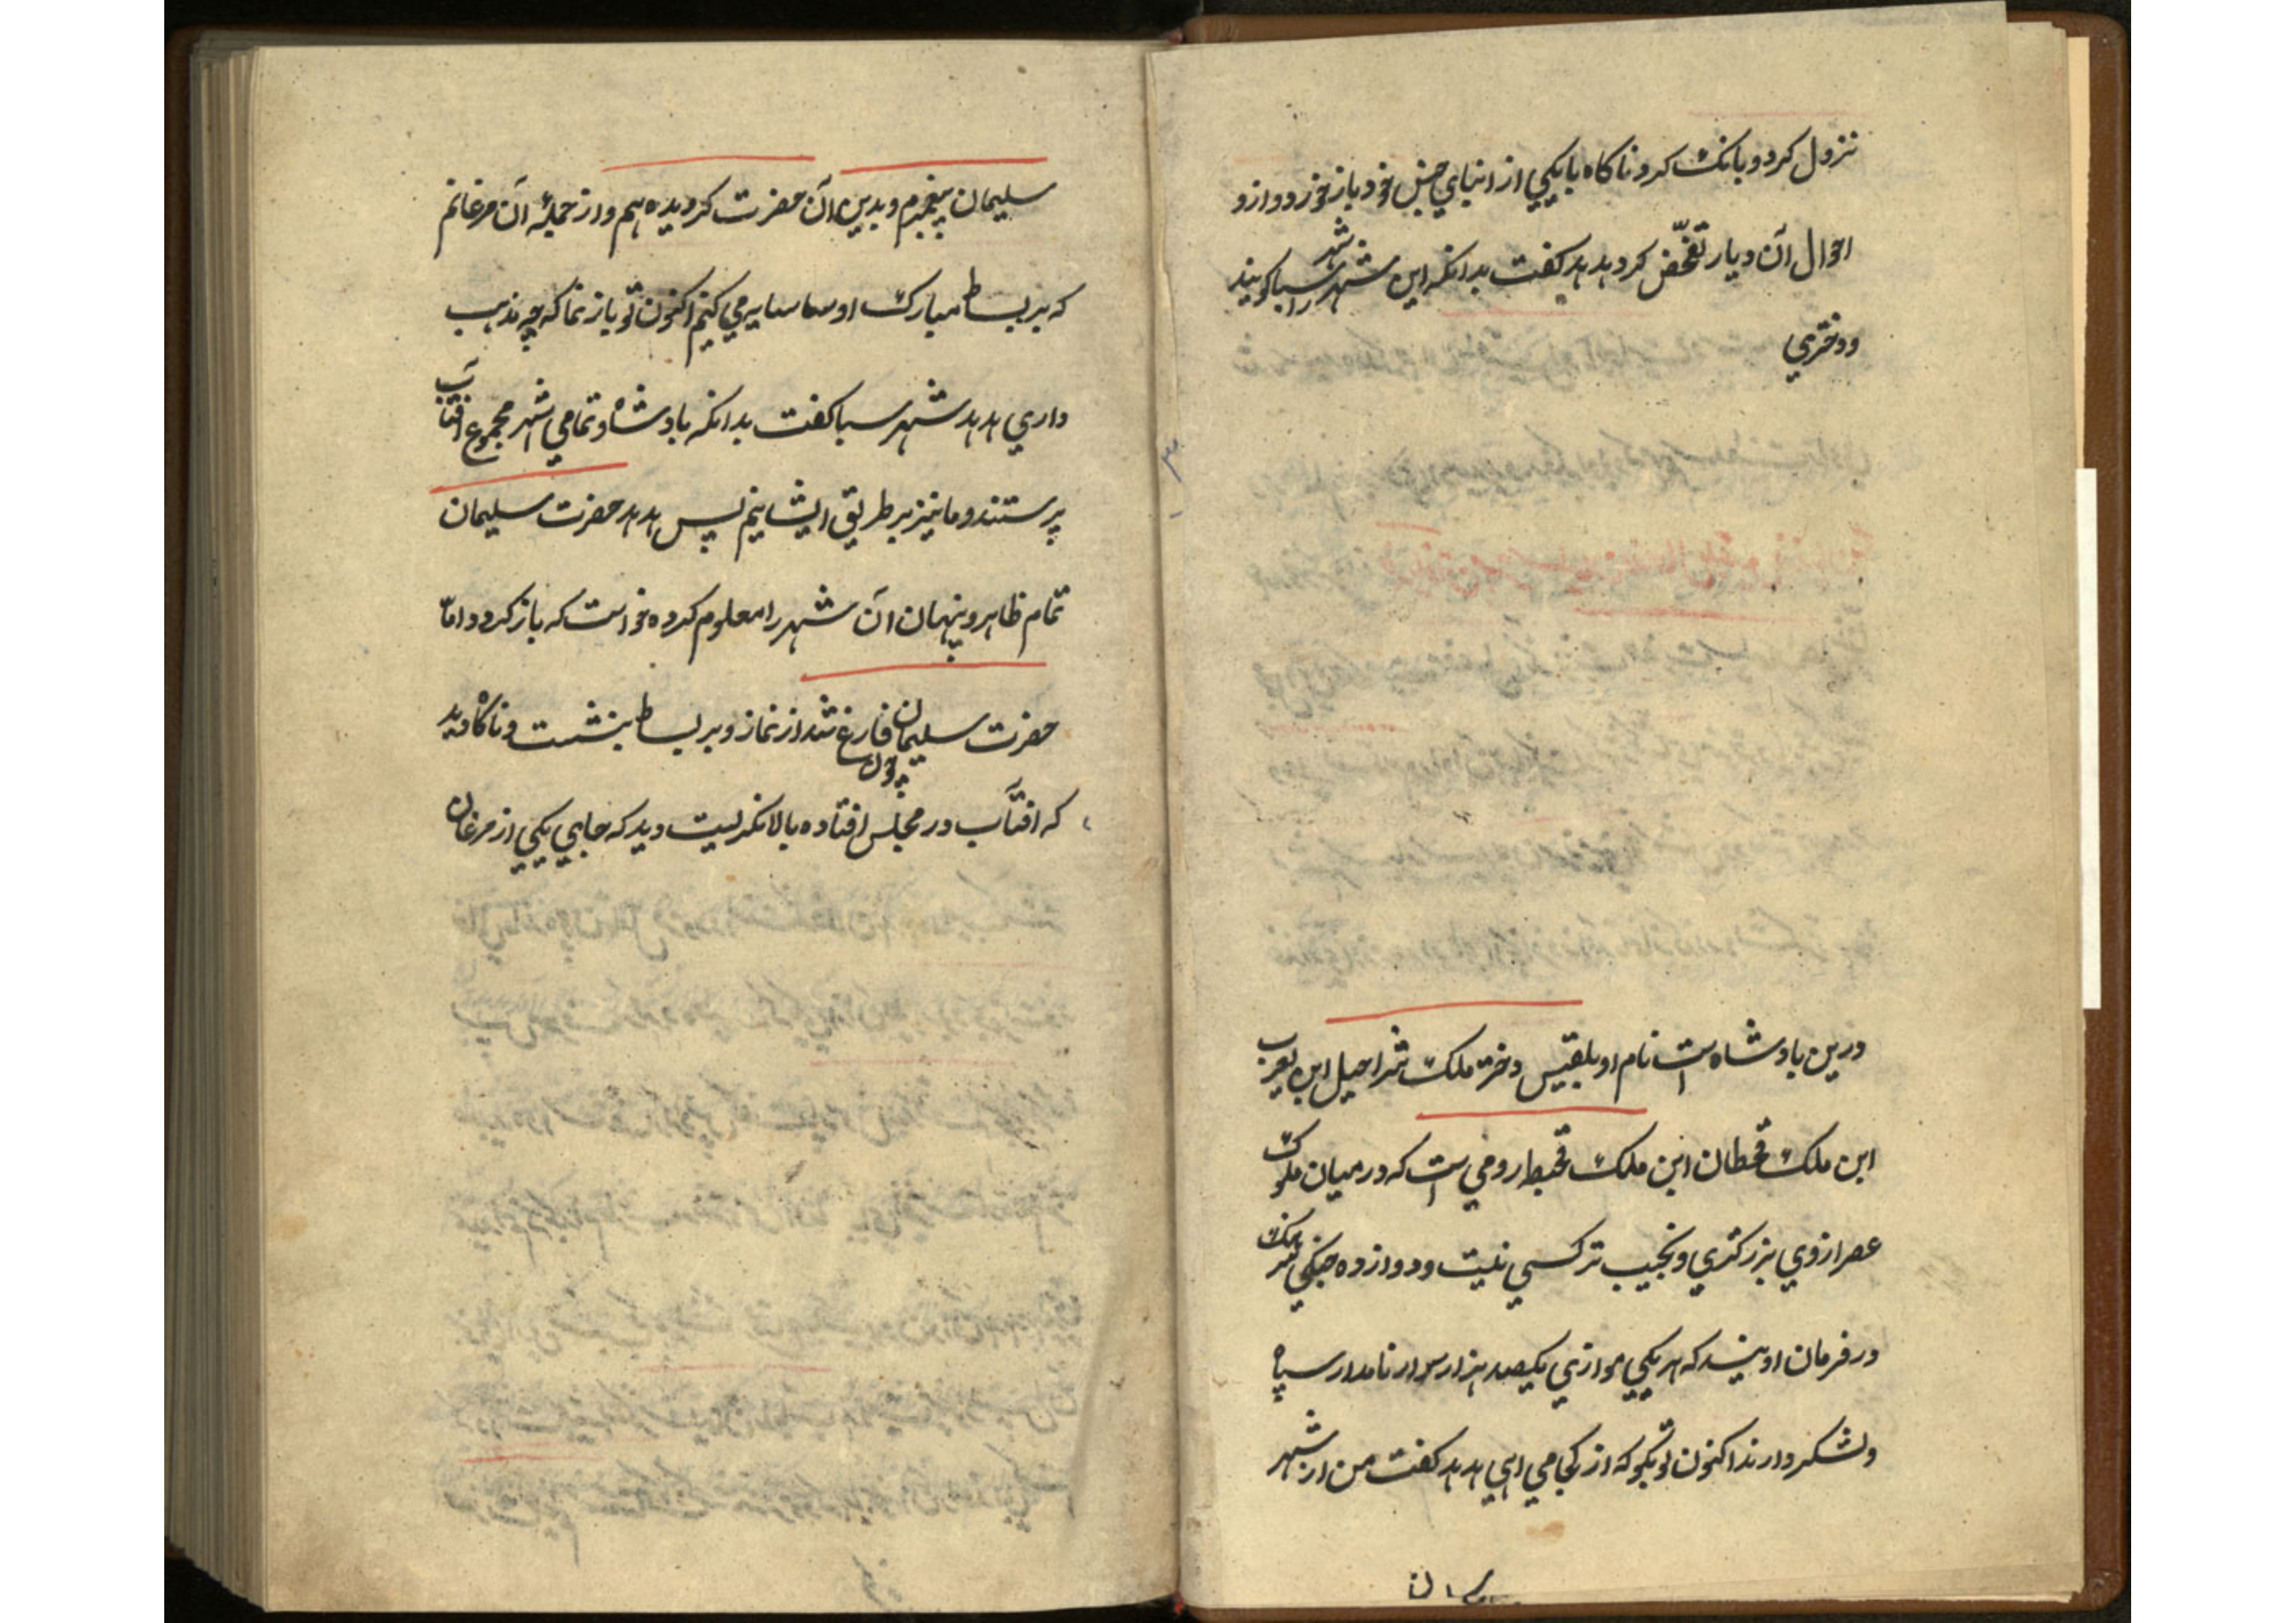 نزول کرد و بانک کرد ناکاه با یکی از ابنای جنس خود باز خورد و از و
احوال آن دیار تفحّص کرد هدهد کفت بدانکه این شهر را شهر سبا کویند
و دختری
درین بادشاه است نام او بلقیس دختر ملک شراحیل ابن یعرب
ابن ملک قحطان ابن ملک قحط رومی است که در میان ملوک
عصر از وی بزرکتری و نجیب تر کسی نیست و دوازده جنکی ملک
در فرمان اویند که هر یکی موازی یکصد هزار سوار نامدار سپاه
و لشکر دارند اکنون تو بکو که از کجا می ایی هدهد کفت من از شهر
سلیمان
سلیمان پیغمبرم و بدین آن حضرت کرویده ایم و از جملهٔ آن مرغانم
که بر بساط مبارک او سایه می کنیم اکنون تو باز نما که چه مذهب
داری هدهد شهر سبا کفت بدانکه بادشاه و تمامی شهر مجموع افتاب
پرستند و ما نیز بر طریق ایشانیم پس هدهد حضرت سلیمان
تمام ظاهر و پنهان آن شهر را معلوم کرده خواست که باز کردد امّا
حضرت سلیمان چون فارغ شد از نماز و بر بساط بنشست و ناکاه دید
که افتآب در مجلس افتاده بالا نکریست دید که جایی یکی از مرغان